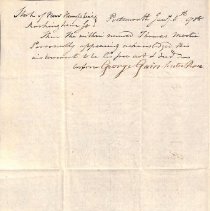 State of New Hampshire Portsmouth Jany 8th 
Rockingham Ss
Then the within named Thomas
Personally appearing acknowledged this
instrument to be his free act & deed
before George Gains Justice Peace